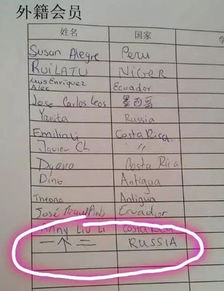 外籍会员
姓名 国家
Susan Alegre Peru
RuiLATU NIGER
Luis Enriquez
Alex Ecuador
Jose Carlos Leos 墨西哥
Yavita Russia
Emiliani Costa Rica
Javier Ch. "
Costa Rica
Dino Antigua
Antigua
José Ecuador
Liu Li Costa Rica
一个二 RUSSIA